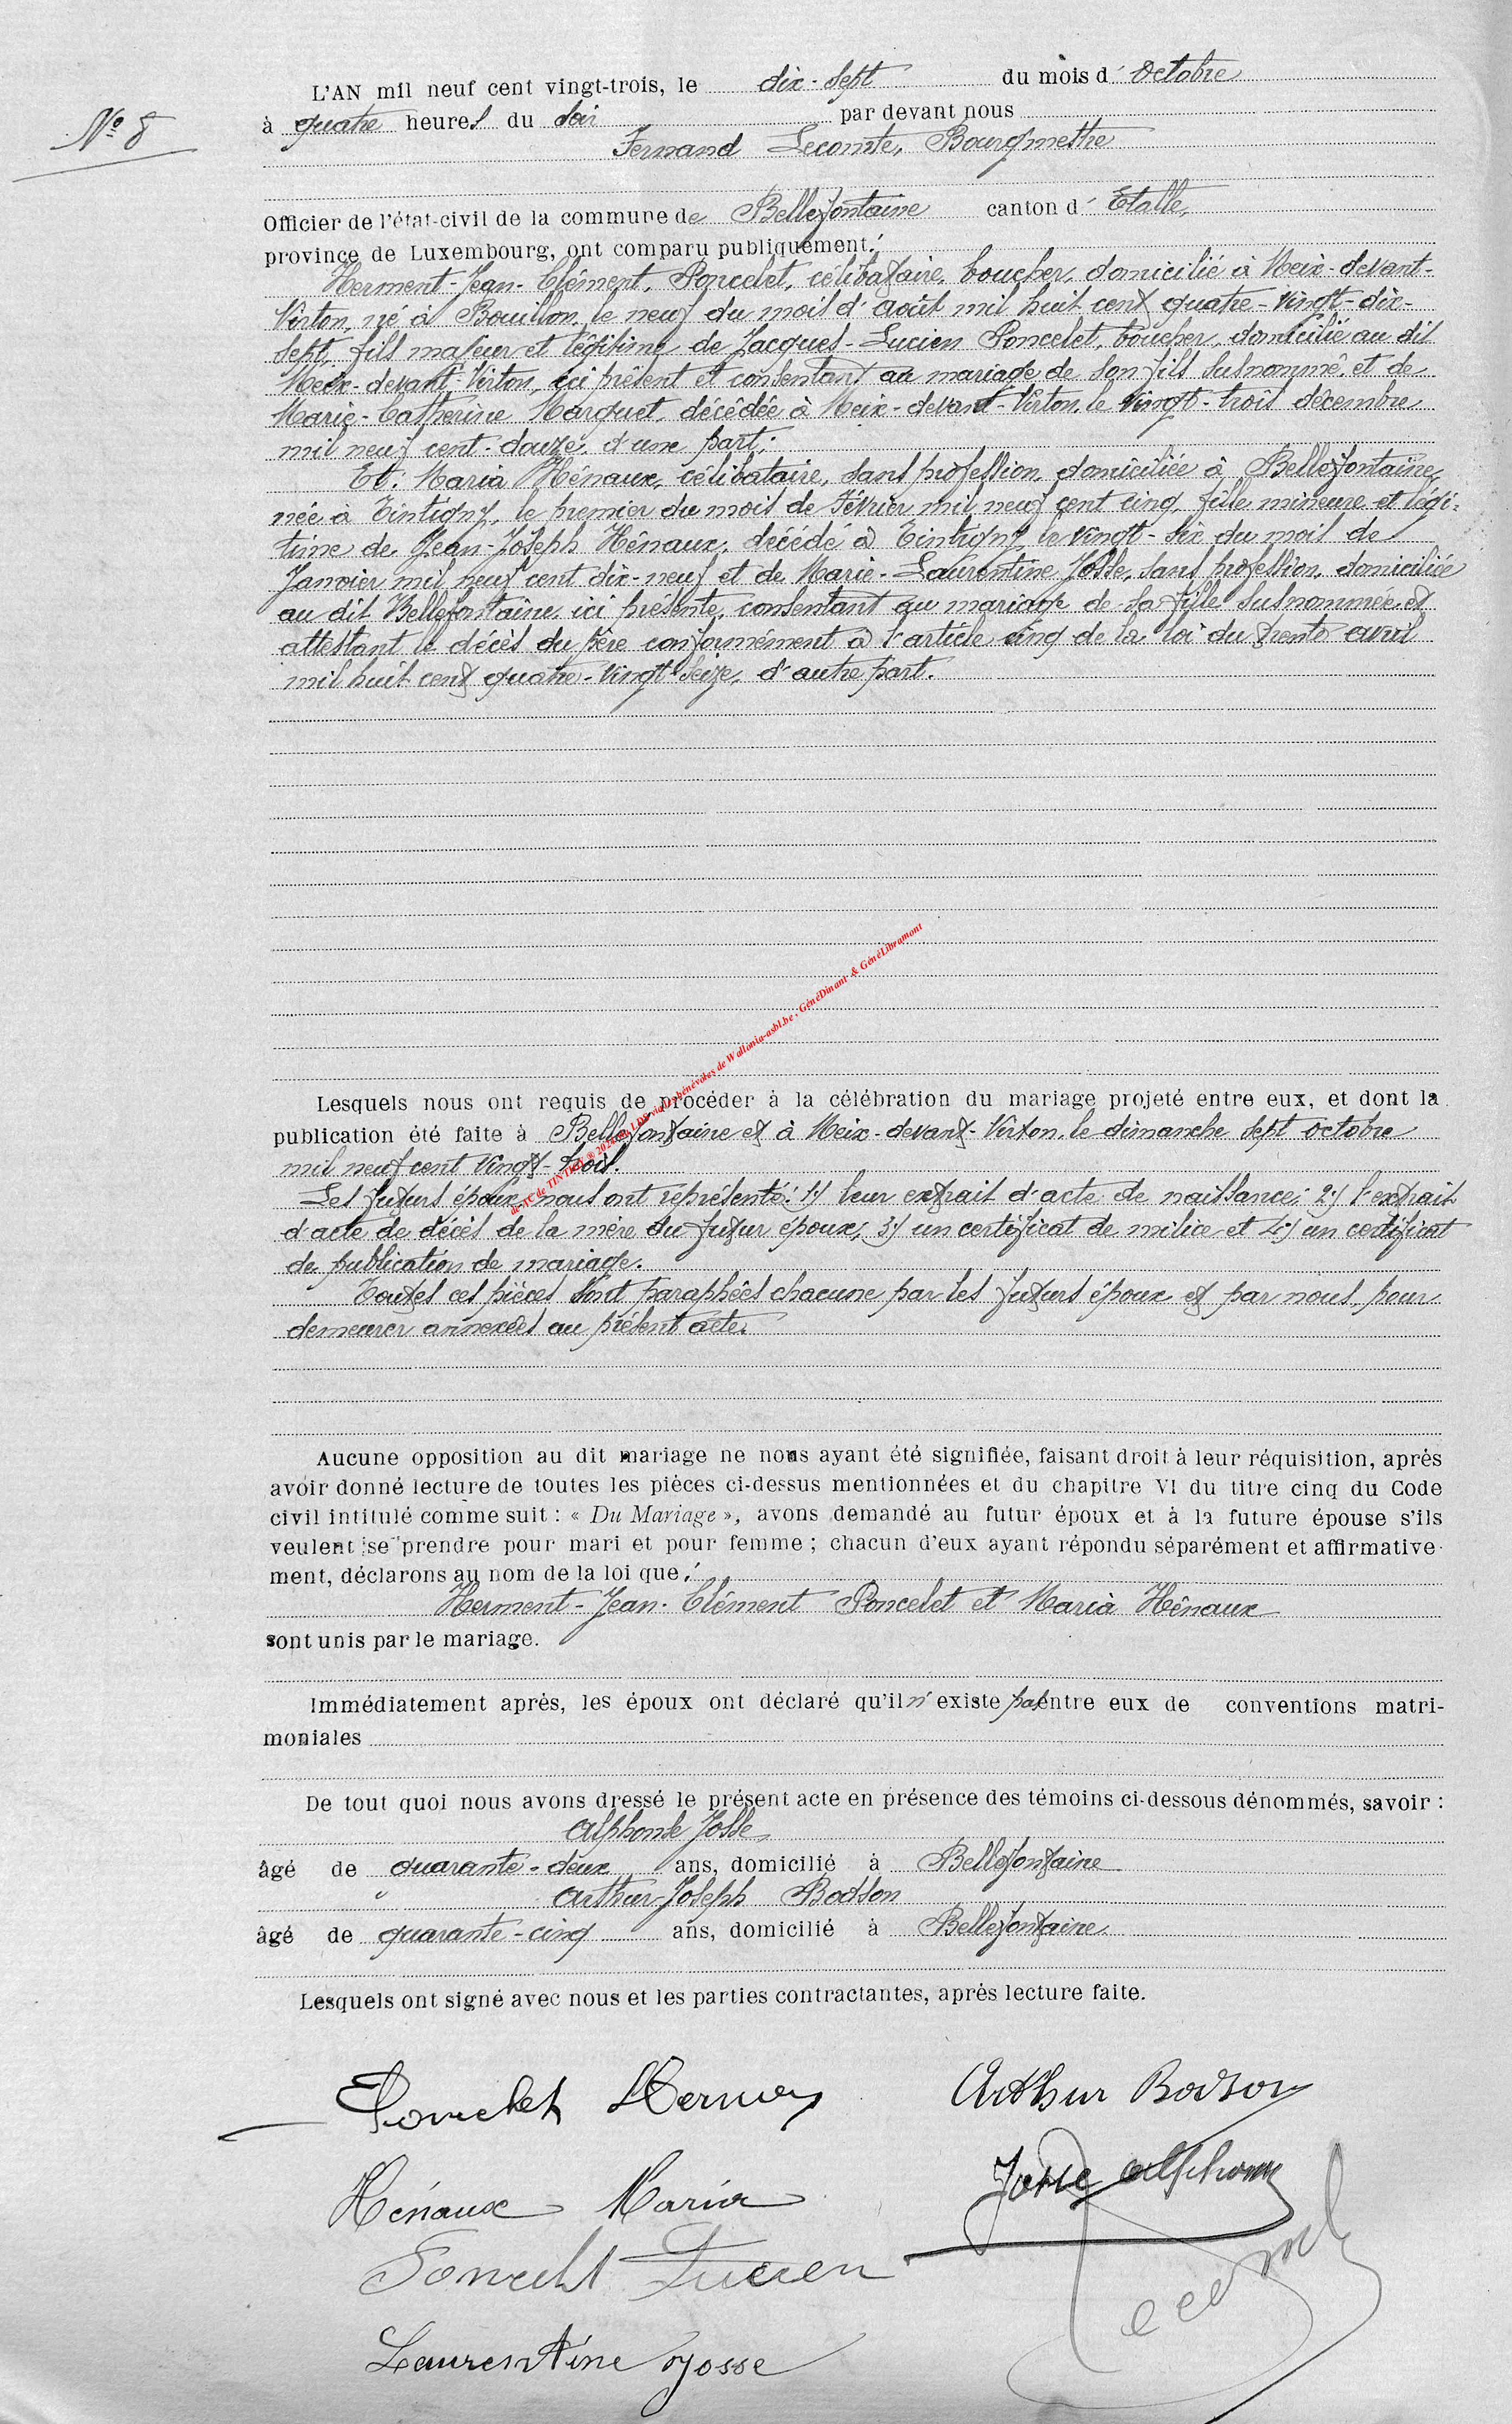 L'AN mil neuf cent vingt-trois, le dix-sept du mois d'Octobre
N° 8
à quatre heures du soir par devant nous
Fernand Lecomte, Bourgmestre
Officier de l'état-civil de la commune de Bellefontaine canton d'Etalle,
province de Luxembourg, ont comparu publiquement :
Herment-Jean-Clément Poncelet, célibataire, boucher, domicilié à Meix-devant-
Virton, né à Bouillon, le neuf du mois d'août mil huit cent quatre-vingt-dix-
sept, fils majeur et légitime de Jacques-Lucien Poncelet, boucher, domicilié au dit
Meix-devant-Virton, ici présent et consentant au mariage de son fils susnommé et de
Marie-Catherine Marquet, décédée à Meix-devant-Virton, le vingt-trois décembre
mil neuf cent-douze, d'une part;
Et : Maria Hénaux, célibataire, sans profession, domiciliée à Bellefontaine,
née à Tintigny, le premier du mois de Février mil neuf cent cinq, fille mineure et légi-
time de Jean-Joseph Hénaux, décédé à Tintigny, le vingt-six du mois de
Janvier mil neuf cent dix-neuf et de Marie-Laurentine Josse, sans profession, domiciliée
au dit Bellefontaine, ici présente, consentant au mariage de sa fille susnommée et
attestant le décès du père conformément à l'article cinq de la loi du trente avril
mil huit cent quatre-vingt-seize, d'autre part.
Lesquels nous ont requis de procéder à la célébration du mariage projeté entre eux, et dont la
publication été faite à Bellefontaine et à Meix-devant-Virton, le dimanche sept octobre
mil neuf cent vingt-trois.
Les futurs époux nous ont représenté : 1°) leur extrait d'acte de naissance; 2°) l'extrait
d'acte de décès de la mère du futur époux; 3°) un certificat de milice et 4°) un certificat
de publication de mariage.
Toutes ces pièces sont paraphées chacune par les futurs époux et par nous pour
demeurer annexées au présent acte.
Aucune opposition au dit mariage ne nous ayant été signifiée, faisant droit à leur réquisition, après
avoir donné lecture de toutes les pièces ci-dessus mentionnées et du chapitre VI du titre cinq du Code
civil intitulé comme suit : « Du Mariage », avons demandé au futur époux et à la future épouse s'ils
veulent se prendre pour mari et pour femme ; chacun d'eux ayant répondu séparément et affirmative-
ment, déclarons au nom de la loi que :
Herment-Jean-Clément Poncelet et Maria Hénaux
sont unis par le mariage.
Immédiatement après, les époux ont déclaré qu'il n'existe pas entre eux de conventions matri-
moniales
De tout quoi nous avons dressé le présent acte en présence des témoins ci-dessous dénommés, savoir :
Alphonse Josse,
âgé de quarante-deux ans, domicilié à Bellefontaine
Arthur-Joseph Bodson
âgé de quarante-cinq ans, domicilié à Bellefontaine.
Lesquels ont signé avec nous et les parties contractantes, après lecture faite.
Poncelet Herment
Arthur Bodson
Hénaux Maria
Josse Alphonse
Poncelet Lucien
Lecomte
Laurentine Josse